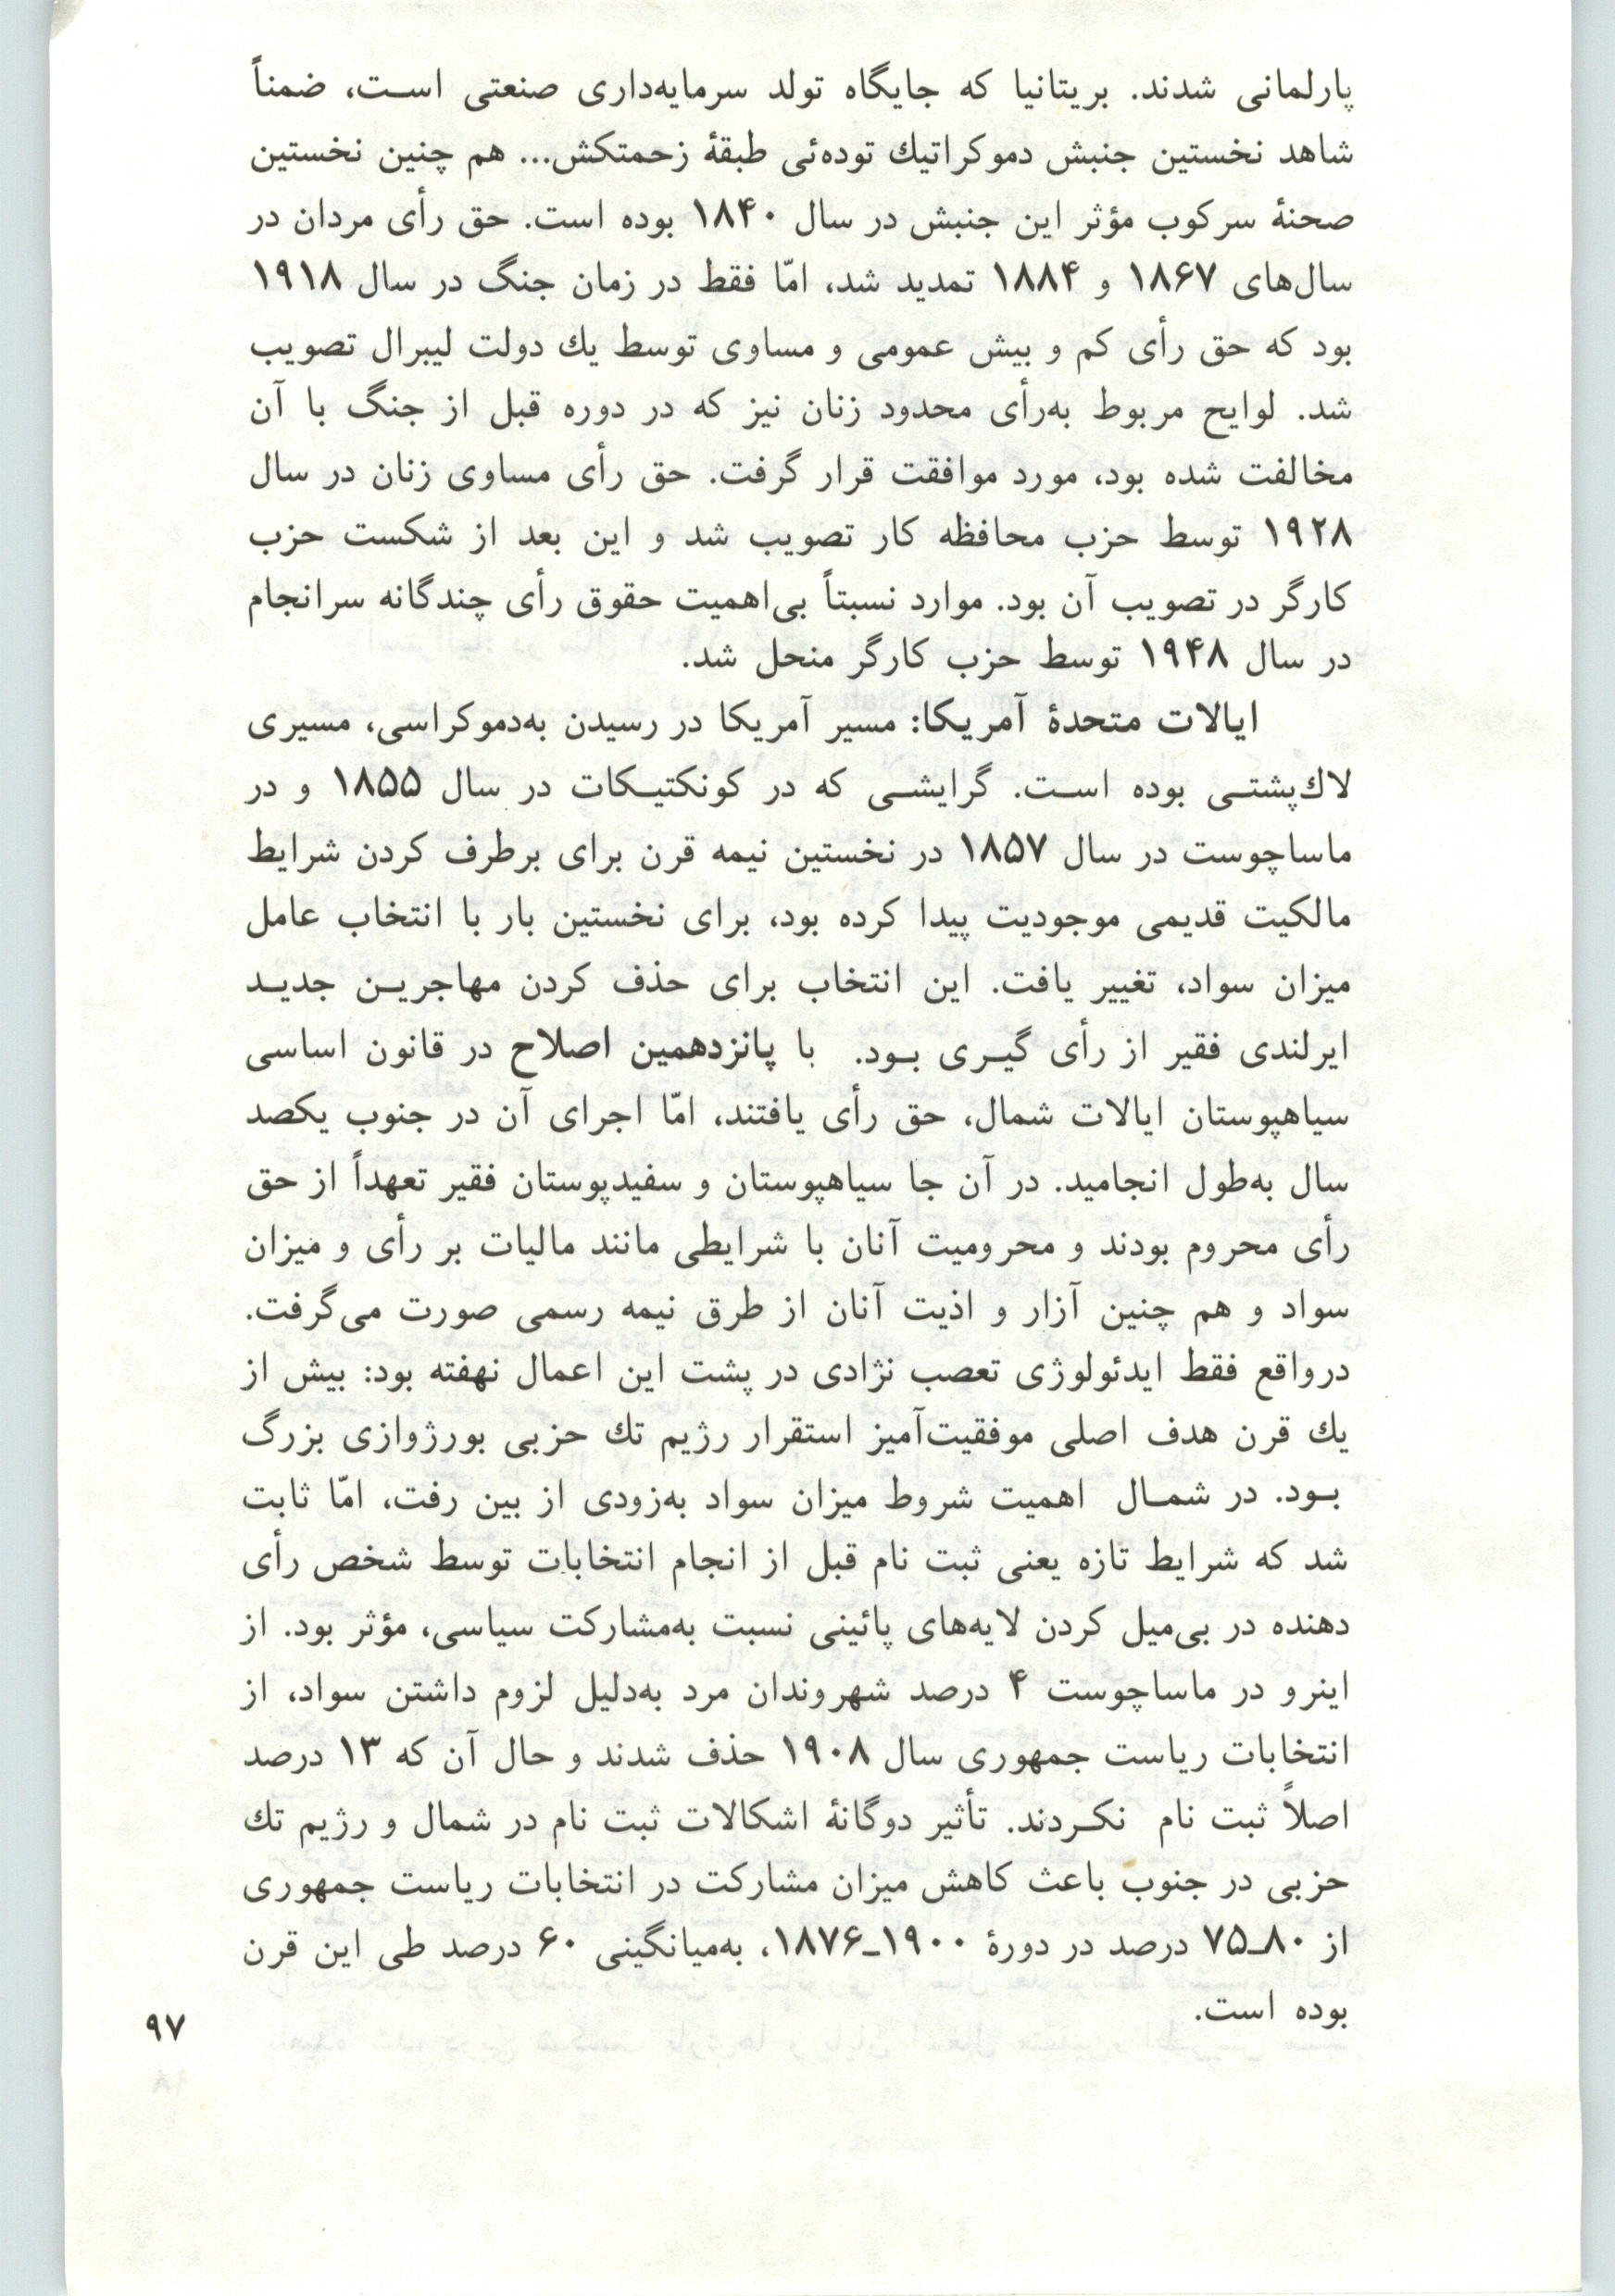 پارلمانی شدند. بریتانیا که جایگاه تولد سرمایه‌داری صنعتی است، ضمناً
شاهد نخستین جنبش دموکراتیك توده‌ئی طبقهٔ زحمتکش... هم چنین نخستین
صحنهٔ سرکوب مؤثر این جنبش در سال ۱۸۴۰ بوده است. حق رأی مردان در
سال‌های ۱۸۶۷ و ۱۸۸۴ تمدید شد، امّا فقط در زمان جنگ در سال ۱۹۱۸
بود که حق رأی کم و بیش عمومی و مساوی توسط یك دولت لیبرال تصویب
شد. لوایح مربوط به‌رأی محدود زنان نیز که در دوره قبل از جنگ با آن
مخالفت شده بود، مورد موافقت قرار گرفت. حق رأی مساوی زنان در سال
۱۹۲۸ توسط حزب محافظه کار تصویب شد و این بعد از شکست حزب
کارگر در تصویب آن بود. موارد نسبتاً بی‌اهمیت حقوق رأی چندگانه سرانجام
در سال ۱۹۴۸ توسط حزب کارگر منحل شد.
ایالات متحدهٔ آمریکا: مسیر آمریکا در رسیدن به‌دموکراسی، مسیری
لاك‌پشتی بوده است. گرایشی که در کونکتیکات در سال ۱۸۵۵ و در
ماساچوست در سال ۱۸۵۷ در نخستین نیمه قرن برای برطرف کردن شرایط
مالکیت قدیمی موجودیت پیدا کرده بود، برای نخستین بار با انتخاب عامل
میزان سواد، تغییر یافت. این انتخاب برای حذف کردن مهاجرین جدید
ایرلندی فقیر از رأی گیری بود. با پانزدهمین اصلاح در قانون اساسی
سیاهپوستان ایالات شمال، حق رأی یافتند، امّا اجرای آن در جنوب یکصد
سال به‌طول انجامید. در آن جا سیاهپوستان و سفیدپوستان فقیر تعهداً از حق
رأی محروم بودند و محرومیت آنان با شرایطی مانند مالیات بر رأی و میزان
سواد و هم چنین آزار و اذیت آنان از طرق نیمه رسمی صورت می‌گرفت.
درواقع فقط ایدئولوژی تعصب نژادی در پشت این اعمال نهفته بود: بیش از
یك قرن هدف اصلی موفقیت‌آمیز استقرار رژیم تك حزبی بورژوازی بزرگ
بود. در شمال اهمیت شروط میزان سواد به‌زودی از بین رفت، امّا ثابت
شد که شرایط تازه یعنی ثبت نام قبل از انجام انتخابات توسط شخص رأی
دهنده در بی‌میل کردن لایه‌های پائینی نسبت به‌مشارکت سیاسی، مؤثر بود. از
اینرو در ماساچوست ۴ درصد شهروندان مرد به‌دلیل لزوم داشتن سواد، از
انتخابات ریاست جمهوری سال ۱۹۰۸ حذف شدند و حال آن که ۱۳ درصد
اصلاً ثبت نام نکردند. تأثیر دوگانهٔ اشکالات ثبت نام در شمال و رژیم تك
حزبی در جنوب باعث کاهش میزان مشارکت در انتخابات ریاست جمهوری
از ۸۰ـ۷۵ درصد در دورهٔ ۱۹۰۰ـ۱۸۷۶، به‌میانگینی ۶۰ درصد طی این قرن
بوده است.
۹۷